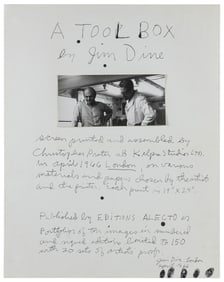 A TOOL BOX
by Jim Dine
Screen printed and assembled by
Christopher Prater at Kelpra Studio LTD.
in april 1966 London, on various
materials and papers chosen by the artist
and the printer. Each print is 19" x 24".
Published by EDITIONS ALECTO as
Portfolios of ten images in numbered
and signed editions limited to 150
with 20 sets of artists proofs.
Jim Dine London
1966